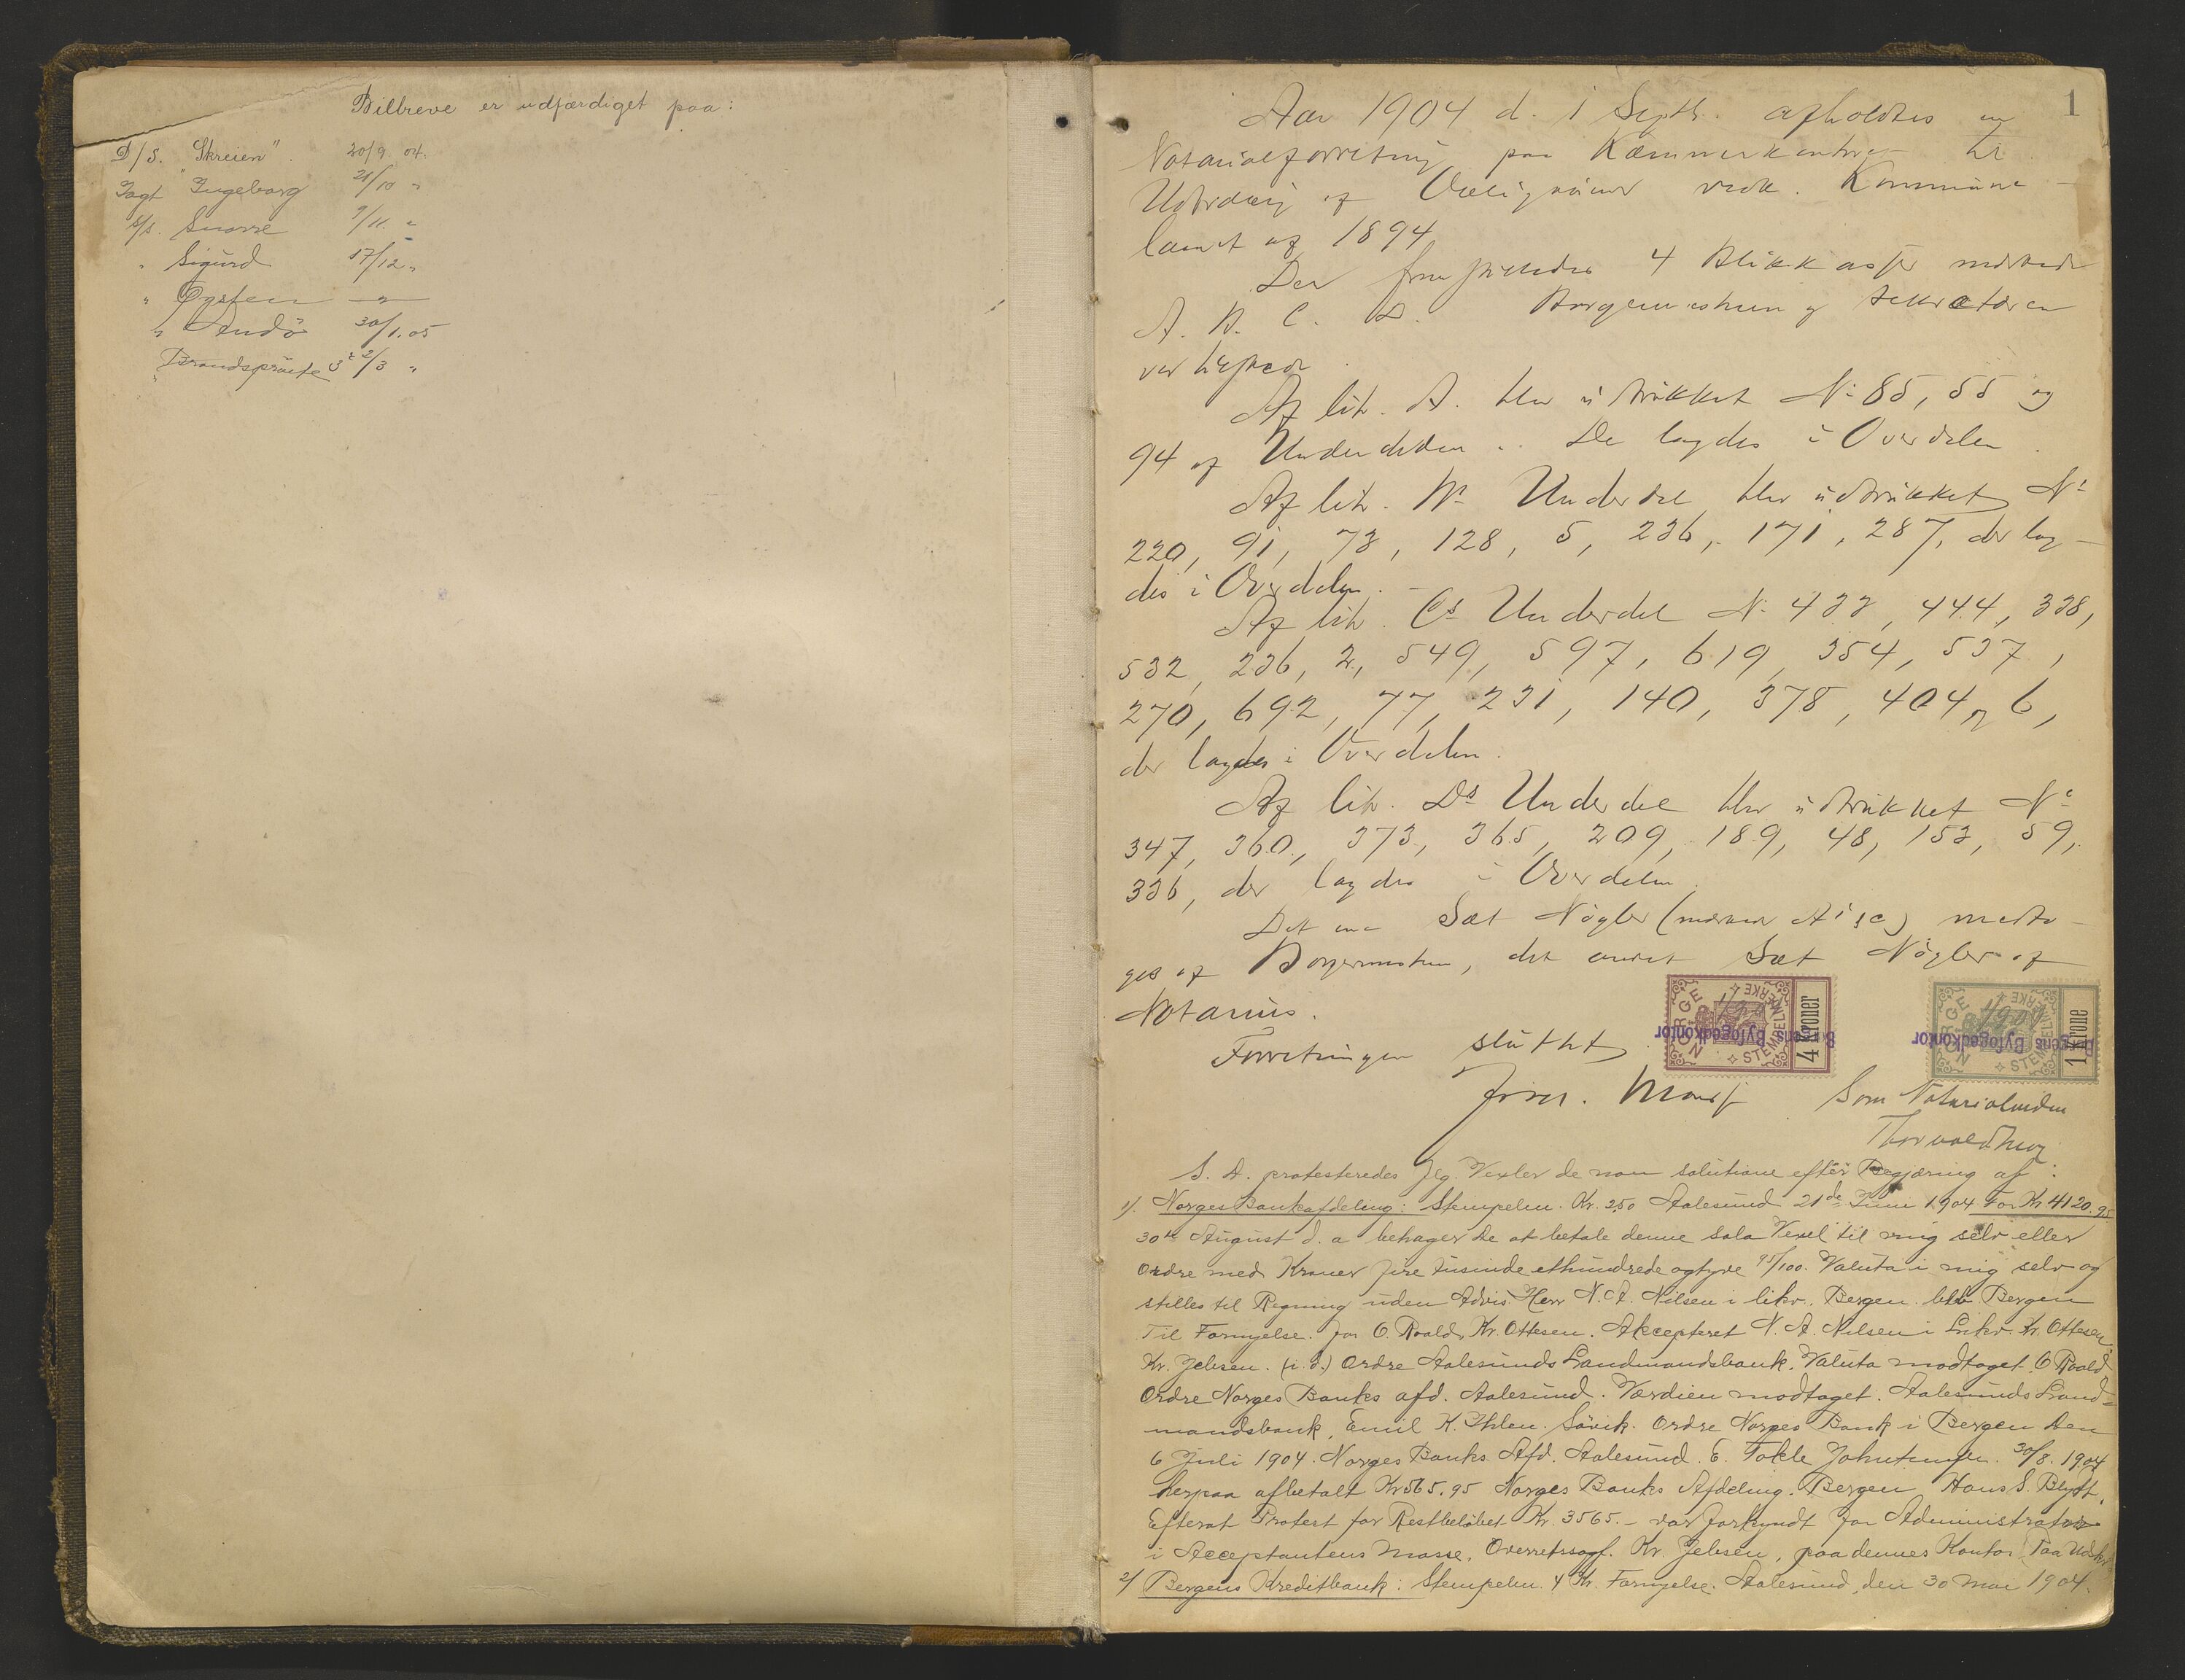 Bilbreve er udfærdiget paa:
D/S. "Skreien". 20/9 04.
Jagt "Ingeborg 21/10 "
S/S. Snorre 9/11. "
" Sigurd 17/12 "
" Øystein — " —
" Andö 30/1.05
" Brandspröite 2/3 "
1
Aar 1904 d. 1 Septb. afholdtes en
Notarialforretning paa Kæmnerkontoret til
Udtrækning af Obligationer vedk. Kommune-
laanet af 1894
Der fremstilledes 4 Blikkasser mærkede
A. B. C. D. Borgermesteren og Sekretæren
var tilstede.
Af litr. A. blev udtrukket No 85, 55 og
94 af Underdelen. De lagdes i Overdelen.
Af litr. Bs Underdel blev udtrukket No
220, 91, 73, 128, 5, 236, 171, 287, der lag-
des i Overdelen. -
Af litr. Cs Underdel No 433, 444, 338,
532, 236, 2, 549, 597, 619, 354, 537,
270, 692, 77, 231, 140, 378, 404 og 6,
der lagdes i Overdelen.
Af litr. Ds Underdel blev udtrukket No
347, 360, 373, 365, 209, 189, 48, 153, 59,
336, der lagdes i Overdelen.
Det ene Sæt Nögler (mærket ) medto-
ges af Borgermesteren, det andet Sæt Nögler af
Notarius.
Forretningen sluttet
NORGE STEMPELMERKE 4 Kroner
Bergens Byfogedkontor
NORGE STEMPELMERKE 1 Krone
Bergens Byfogedkontor
Som Notarialvidne
S. D. protesteredes flg. Vexler de non solutione efter Begjæring af:
1/. Norges Bankafdeling: Stempelm. Kr. 2.50 Aalesund 21de Juni 1904 For Kr 4120.95
30te August d. a behager De at betale denne sola Vexel til mig selv eller
Ordre med Kroner fire tusinde ethundrede ogtyve 95/100. Valuta i mig selv og
stilles til Regning uden Advis. Herr N. A. Nilsen i likv. Bergen. btb Bergen
Til Fornyelse. for O. Roald, Kr. Ottesen. Akcepteret N. A. Nilsen i Likv. Kr. Ottesen,
Kr. Jebsen. (i. d.) Ordre Aalesunds Landmandsbank. Valuta modtaget. O Roald
Ordre Norges Banks afd. Aalesund. Værdien modtaget. Aalesunds Land-
mandsbank, Emil K. Ihlen. Sövik. Ordre Norges Bank i Bergen den
6 Juli 1904. Norges Banks Afd. Aalesund. E. Tokle 30/8. 1904
herpaa afbetalt Kr 565.95 Norges Banks Afdeling. Bergen Hans S. Blydt.
Efterat Protest for Restbelöbet Kr. 3565.- var forkyndt for Administrator
i Acceptantens Masse, Overretssagf. Kr. Jebsen, paa dennes Kontor
2/ Bergens Kreditbank: Stempelm. 4 Kr. Fornyelse. Aalesund, den 30 Mai 1904.